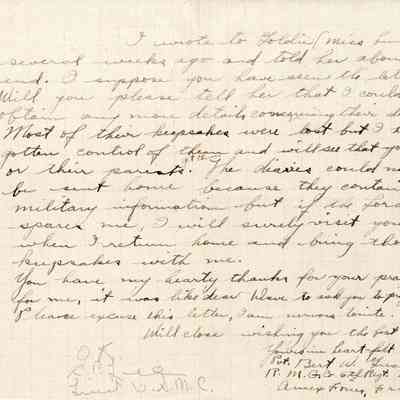 I wrote to Goldie (Miss
several weeks ago and told her abou
end. I suppose you have seen the let
Will you please tell her that I could
obtain any more details concerning their de
Most of their keepsakes were lost but I
gotten control of them and will see that yo
or their parents. The diaries could no
be sent home because they contain
military information but if the
spares me, I will surely visit you
when I return home and bring the
keepsakes with me.
You have my hearty thanks for your pra
for me, it was like dear to ask you to p
Please excuse this letter, I am nervous
Will close wishing you the
Yours in heart felt
Pvt. Bert W.
6th Regt.
Lieut U.S.M.C.
Amex Forces,